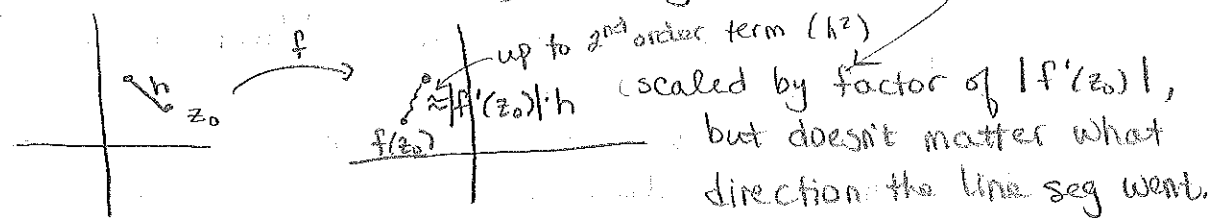 f
up to 2nd order term (h²)
h
z₀
≈|f'(z₀)|·h
f(z₀)
(scaled by factor of |f'(z₀)|,
but doesn't matter what
direction the line seg went.